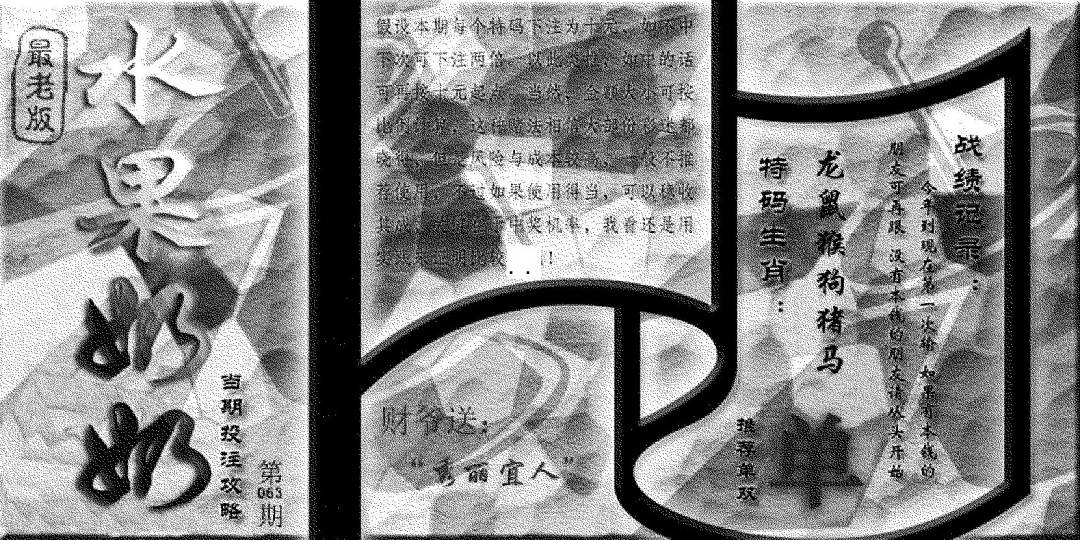 最老版
水果奶奶
当期投注攻略
第
063
期
假设本期每个特码下注为十元，如不中
下次可下注两倍，以此类推，如中的话
可再按十元起点，当然，金额大小可按
这种赌法相信大部份彩迷都
晓得，但是风险与成本较高，一般不推
荐使用，不过如果使用得当，可以稳收
其成
中奖机率，我看还是用
！
财爷送：
“秀丽宜人”
战绩记录：
今年到现在第一次输 如果有本钱的
朋友可再跟 没有本钱的朋友请从头开始
龙鼠猴狗猪马
特码生肖：
推荐单双
单